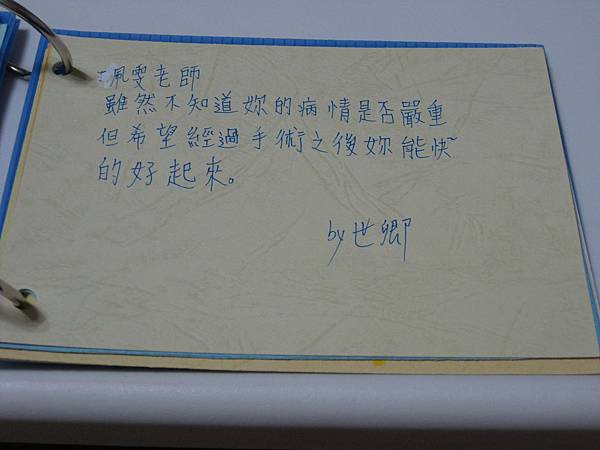 珮雯老師
雖然不知道妳的病情是否嚴重
但希望經過手術之後妳能快~
的好起來。
by世卿